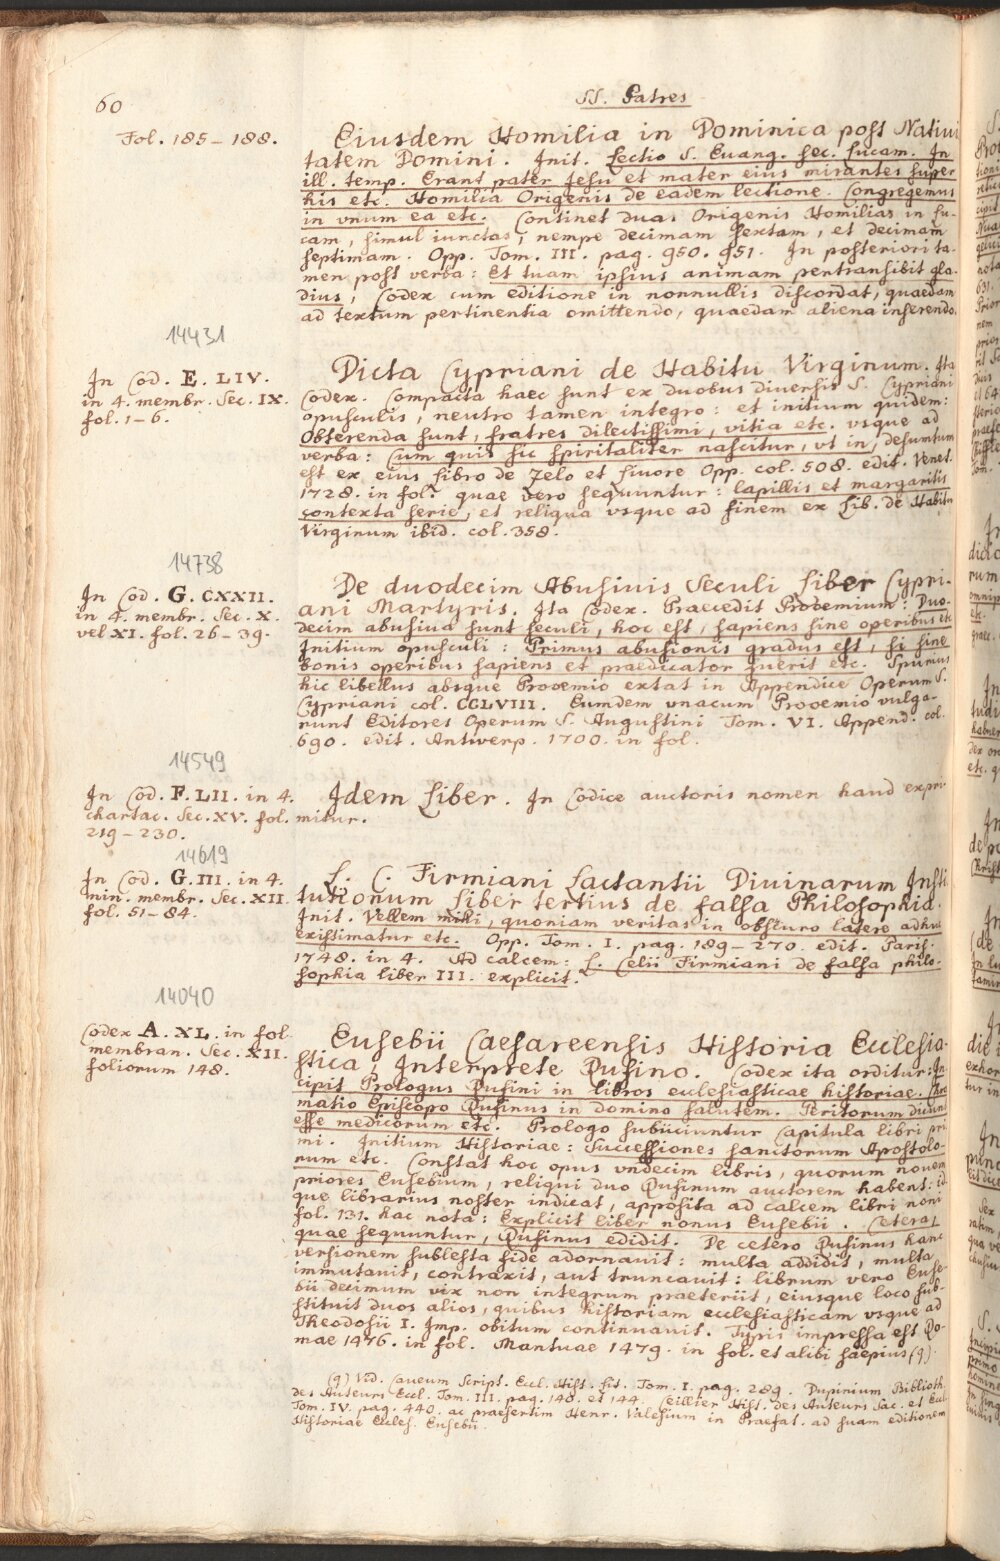 60
SS. Patres
Fol. 185-188.
Eiusdem Homilia in Dominica post Nativi
tatem Domini. Init. Lectio S. Euang. sec. Lucam. In
ill. temp. Erant pater Jesu et mater eius mirantes super
his etc. Homilia Origenis de eadem lectione. Congregemus
in vnum ea etc. Continet duas Origenis Homilias in Lu-
cam, simul iunctas, nempe decimam sextam, et decimam
septimam. Opp. Tom. III. pag. 950. 951. In posteriori ta-
men post verba: Et tuam ipsius animam pentransibit gla-
dius, Codex cum editione in nonnullis discordat, quaedam
ad textum pertinentia omittendo, quaedam aliena inserendo.
14431
In Cod. E. LIV.
in 4. membr. Sec. IX.
fol. 1-6.
Dicta Cypriani de Habitu Virginum. Ita
Codex. Compacta haec sunt ex duobus diuersis S. Cypriani
opusculis, neutro tamen integro: et initium quidem:
Obserenda sunt, fratres dilectissimi, vitia etc. vsque ad
verba: Cum quis sic spiritaliter nascitur, vt in, desumtum
est ex eius Libro de Zelo et Liuore Opp. col. 508. edit. Venet.
1728. in fol. quae vero sequuntur: lapillis et margaritis
contexta serie, et reliqua vsque ad finem ex Lib. de Habitu
Virginum ibid. col. 358.
14738
In Cod. G. CXXII.
in 4. membr. Sec. X.
vel XI. fol. 26-39.
De duodecim Abusiuis Seculi Liber Cypri-
ani Martyris. Ita Codex. Praecedit Prooemium: Duo-
decim abusiua sunt seculi, hoc est, sapiens sine operibus etc
Initium opusculi: Primus abusionis gradus est, si sine
bonis operibus sapiens et praedicator fuerit etc. Spurius
hic libellus absque Prooemio extat in Appendice Operum S.
Cypriani col. CCLVIII. Eumdem vnacum Prooemio vulga-
runt Editores Operum S. Augustini Tom. VI. Append. col.
690. edit. Antwerp. 1700. in fol.
14549
In Cod. F. LII. in 4.
chartac. Sec. XV. fol.
219-230.
Idem Liber. In Codice auctoris nomen haud expri
mitur.
14619
In Cod. G. III. in 4.
min. membr. Sec. XII.
fol. 51-84.
L. C. Firmiani Lactantii Diuinarum Insti
tutionum Liber tertius de falsa Philosophia.
Init. Vellem mihi, quoniam veritas in obscuro latere adhuc
existimatur etc. Opp. Tom. I. pag. 189-270. edit. Paris.
1748. in 4. Ad calcem: L. Celii Firmiani de falsa philo-
sophia liber III. explicit.
14040
Codex A. XL. in fol.
membran. Sec. XII.
foliorum 148.
Eusebii Caesareensis Historia Ecclesia-
stica, Interprete Rufino. Codex ita orditur: In
cipit Prologus Rufini in libros ecclesiasticae historiae. Chro
matio Episcopo Rufinus in domino salutem. Peritorum dicunt
esse medicorum etc. Prologo subiiciuntur Capitula libri pri
mi. Initium Historiae: Successiones sanctorum Apostolo-
rum etc. Constat hoc opus vndecim libris, quorum nouem
priores Eusebium, reliqui duo Rufinum auctorem habent: id
que librarius noster indicat, apposita ad calcem libri noni
fol. 131. hac nota: Explicit liber nonus Eusebii. Cetera,
quae sequuntur, Rufinus edidit. De cetero Rufinus hanc
versionem sublesta fide adornauit: multa addidit, multa
immutauit, contraxit, aut truncauit: librum vero Euse-
bii decimum vix non integrum praeteriit, eiusque loco sub-
stituit duos alios, quibus historiam ecclesiasticam vsque ad
Theodosii I. Imp. obitum continuauit. Typis impressa est Ro-
mae 1476. in fol. Mantuae 1479. in fol. et alibi saepius (q).
(q) Vid. Caueum Script. Eccl. Hist. Lit. Tom. I. pag. 289. Dupinium Biblioth.
des Auteurs Eccl. Tom. III. pag. 140. et 144. Ceillier Hist. des Auteurs Sac. et Eccl.
Tom. IV. pag. 440. ac praesertim Henr. Valesium in Praefat. ad suam editionem
Historiae Eccles. Eusebii.